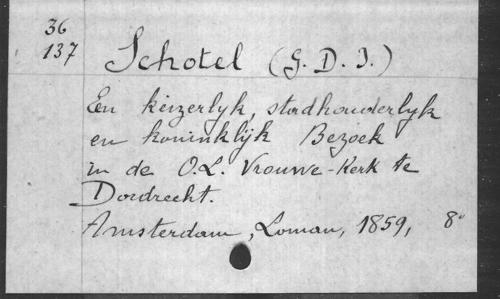 36
137 Schotel (G. D. J.)
Een keizerlyk, stadhouderlyk
en koninklijk Bezoek
in de O.L. Vrouwe-Kerk te
Dordrecht.
Amsterdam, Loman, 1859, 8°